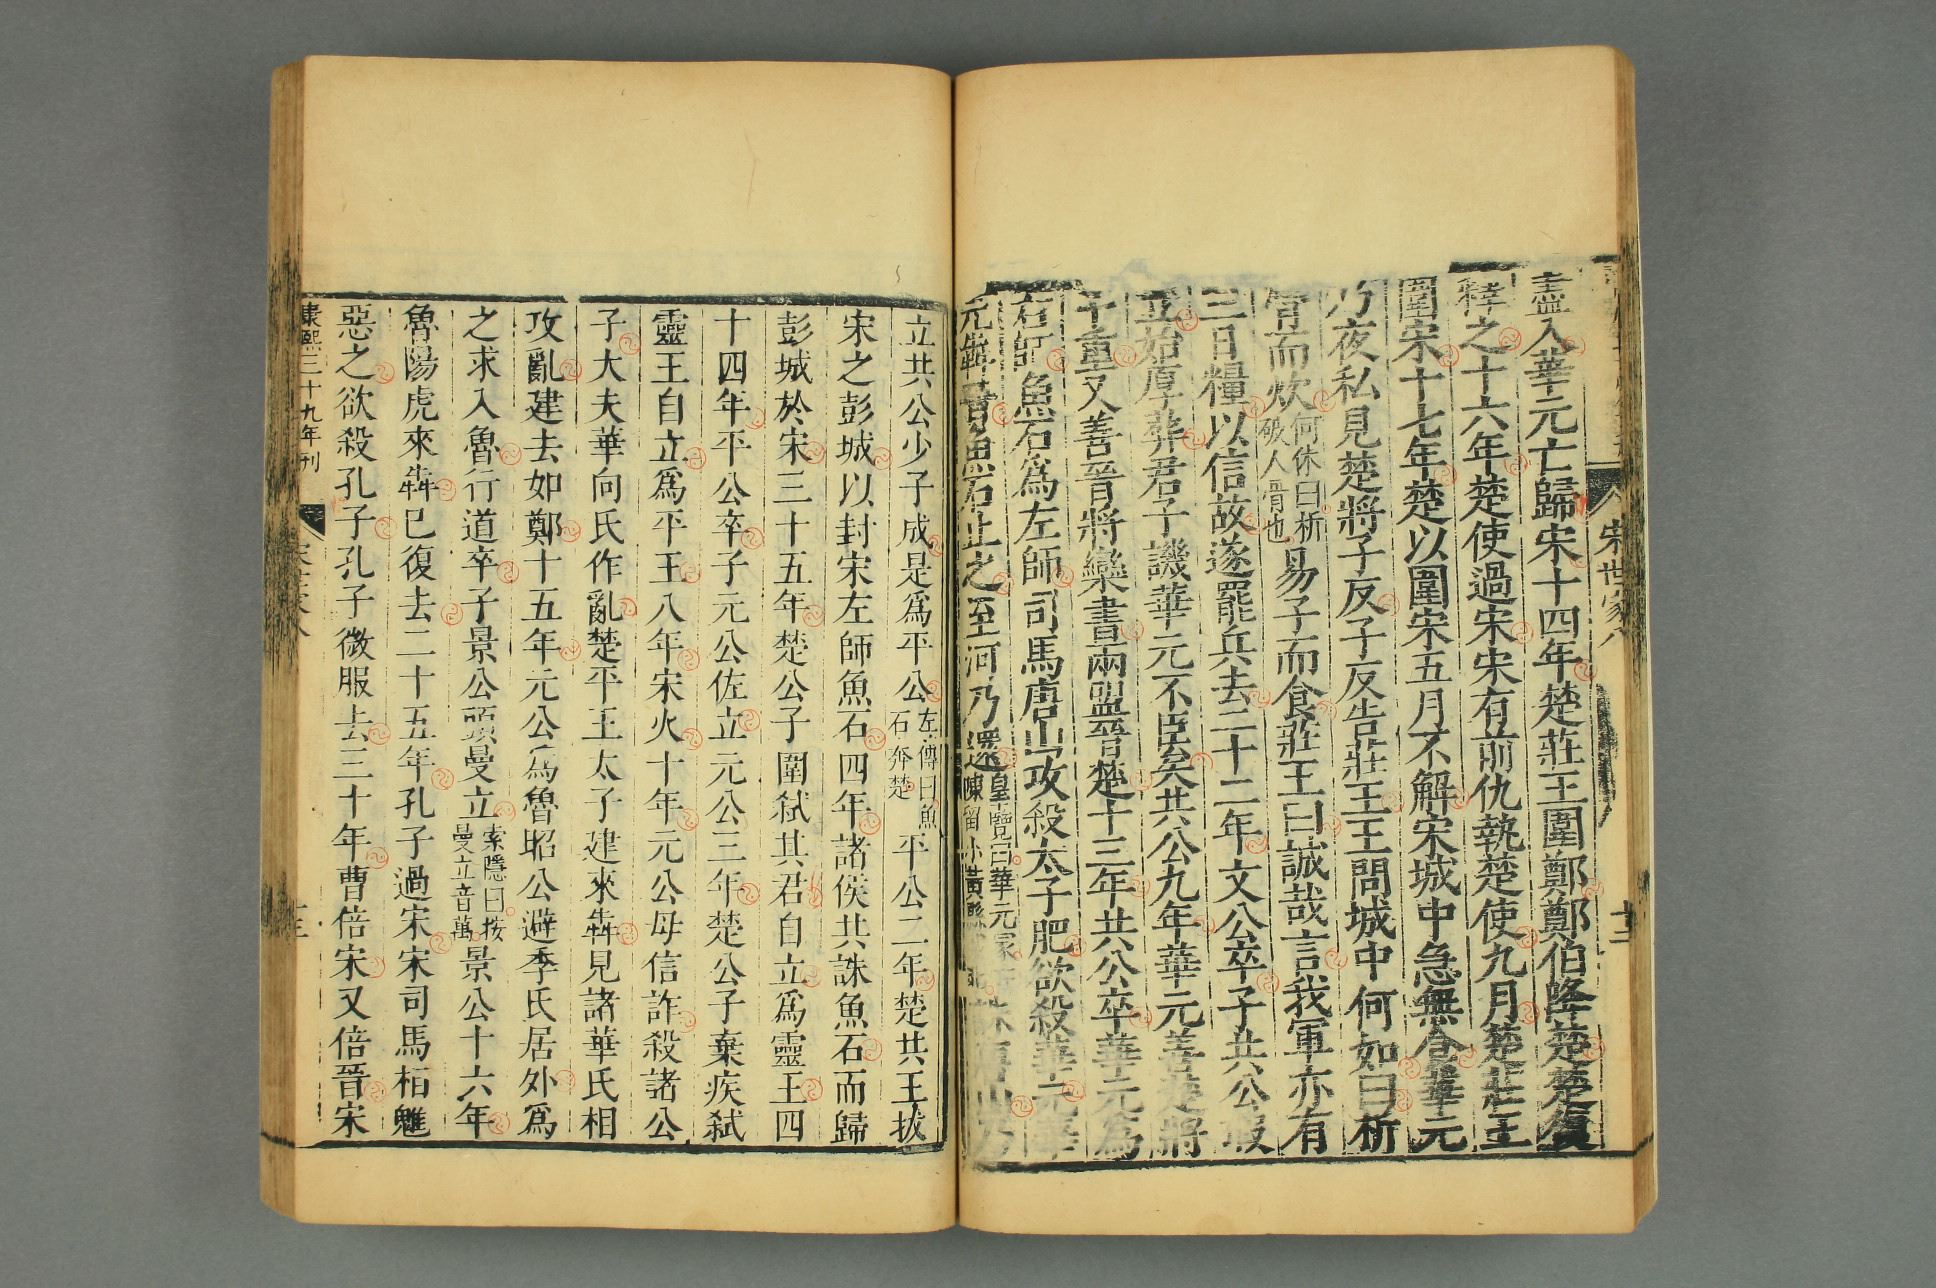 盡入華元亡歸宋十四年楚莊王圍鄭鄭伯降楚楚復
釋之十六年楚使過宋宋有前仇執楚使九月楚莊王
圍宋十七年楚以圍宋五月不解宋城中急無食華元
乃夜私見楚將子反子反告莊王王問城中何如曰析
骨而炊何休曰析破人骨也易子而食莊王曰誠哉言我軍亦有
三日糧以信故遂罷兵去二十二年文公卒子共公瑕
立始厚葬君子譏華元不臣矣共公九年華元善楚將
子重又善晉將欒書兩盟晉楚十三年共公卒華元為
右師魚石為左師司馬唐山攻殺太子肥欲殺華元華
元犇晉魚石止之至河乃還皇覽曰華元冢陳留小黃縣
立共公少子成是為平公左傳曰魚石奔楚平公三年楚共王拔
宋之彭城以封宋左師魚石四年諸侯共誅魚石而歸
彭城於宋三十五年楚公子圍弒其君自立為靈王四
十四年平公卒子元公佐立元公三年楚公子棄疾弒
靈王自立為平王八年宋火十年元公毋信詐殺諸公
子大夫華向氏作亂楚平王太子建來犇見諸華氏相
攻亂建去如鄭十五年元公為魯昭公避季氏居外為
之求入魯行道卒子景公頭曼立索隱曰按曼立音萬景公十六年
魯陽虎來犇已復去二十五年孔子過宋宋司馬桓魋
惡之欲殺孔子孔子微服去三十年曹倍宋又倍晉宋
康熙三十九年刊
宋世家八
宋世家八